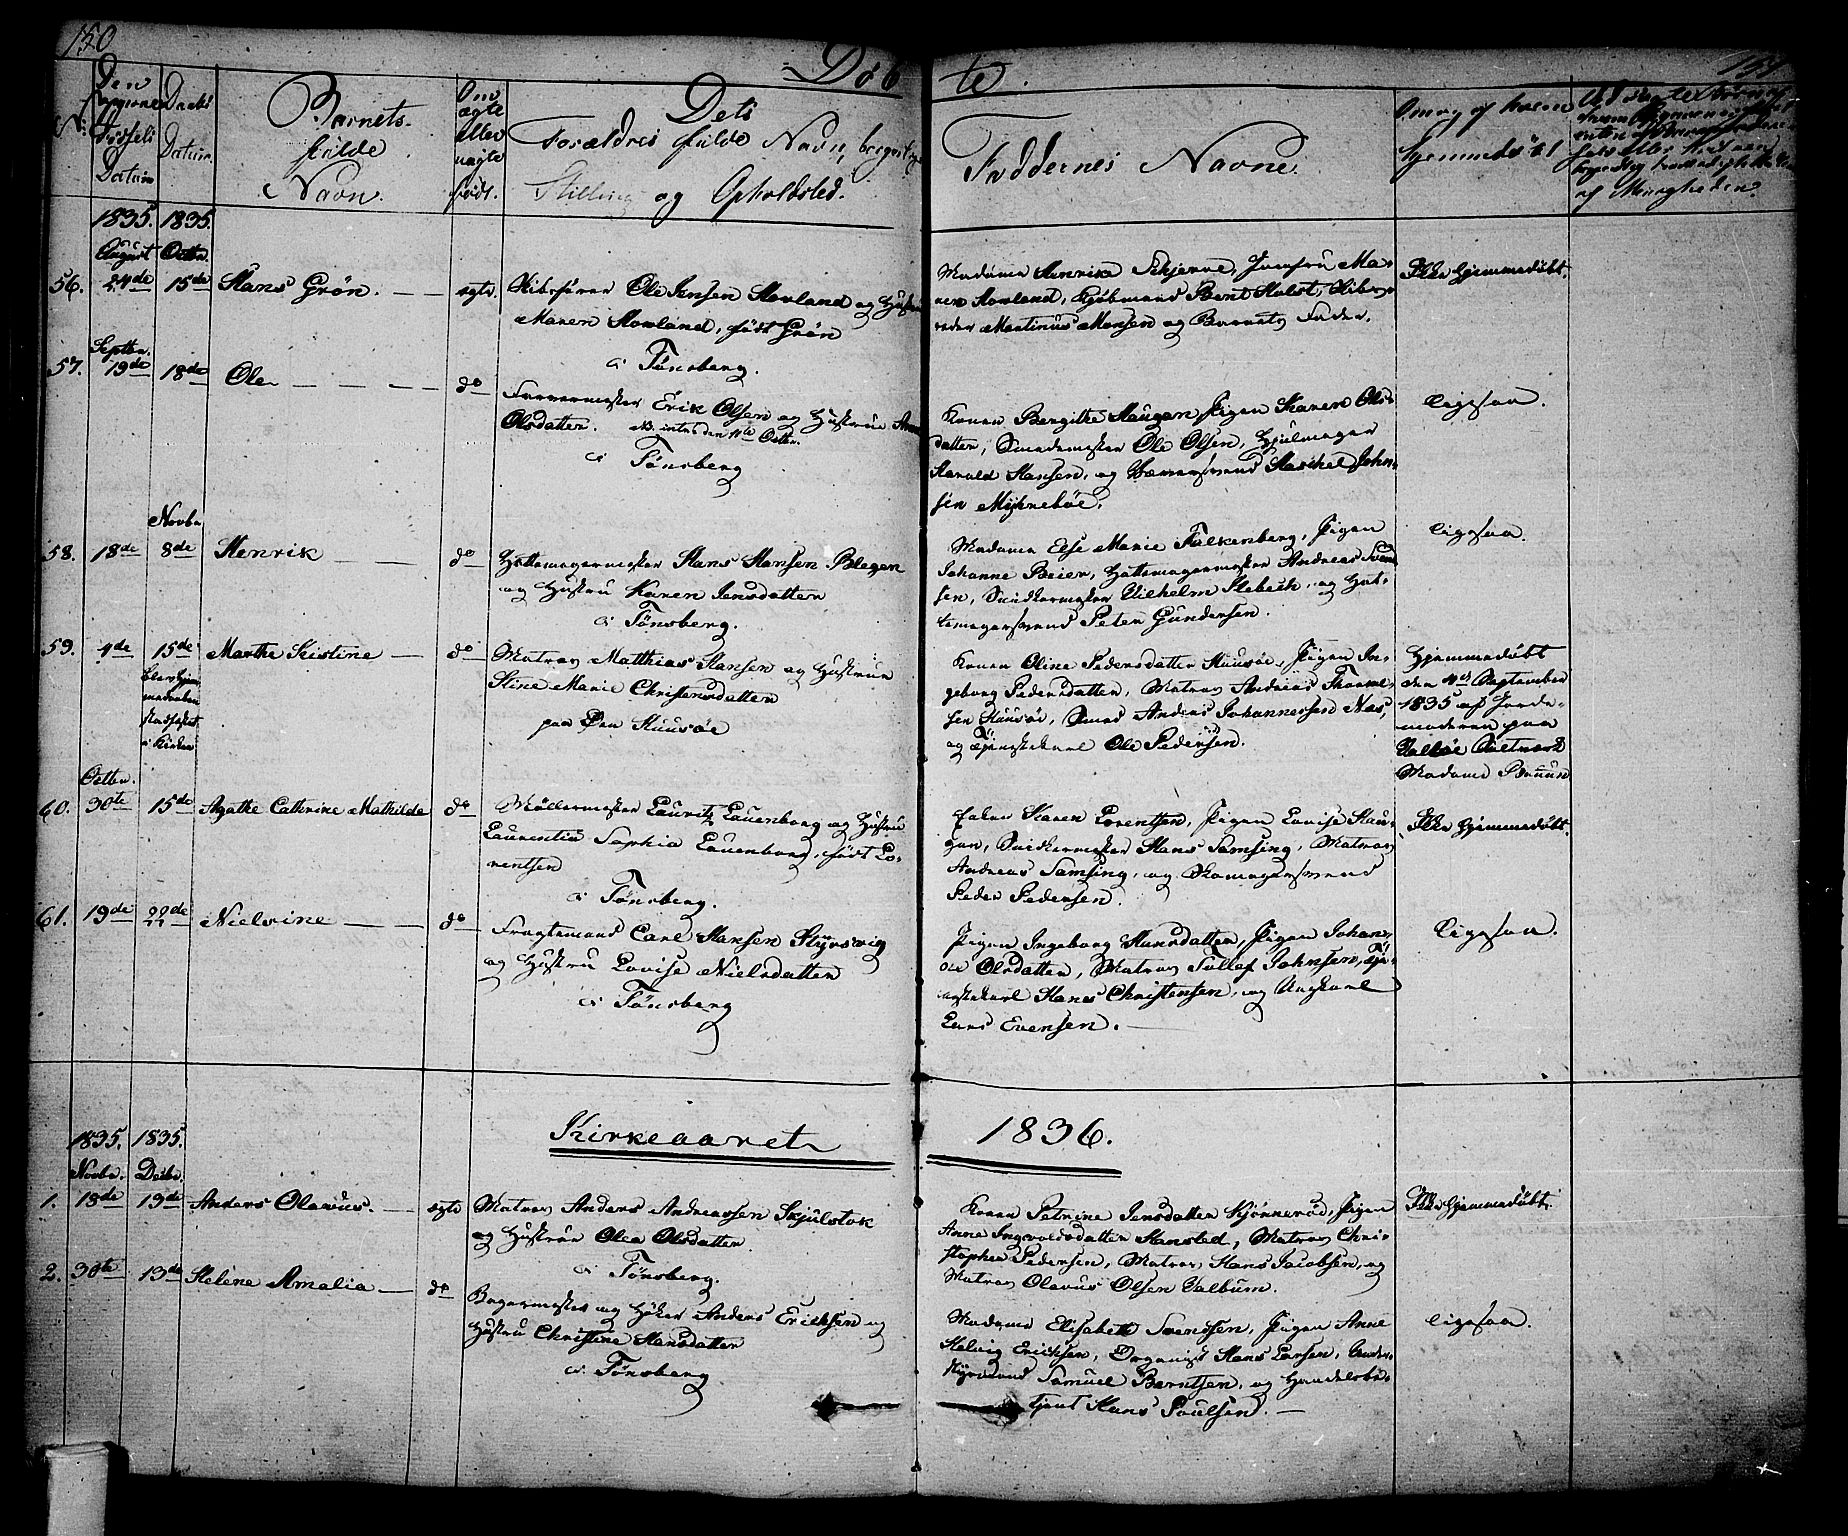 150
Døb
te.
151
No.
Den
Fødsels
Datum
Daabs
Datum.
Barnets
fulde
Navn.
Om
ægte
eller
uægte
født.
Dets
Forældres fulde Navn, borgerlige
Stilling og Opholdsted.
Faddernes Navne.
Hjemmedøbt
af Menigheden.
1835. 1835.
August Octbr.
56. 24de 15de Hans Grön. — ægte. Ole Jensen Hovland og Hustru
Maren Hovland, født Grön
i Tönsberg.
Madame Henrika Schjerve, Jomfru Ma-
ren Hovland, Kjøbmand Bernt Holst, Skibs-
reder Martinus Monsen og Barnets Fader.
Ikke Hjemmedøbt.
Septbr.
57. 19de 18de Ole — — — do Farvermester Erik Olsen og Hustrue Anne
Olsdatter. NB. introd. den 11te Octbr.
i Tönsberg
Konen Bergithe Haugen, Pigen Karen Ols-
datter, Smedemester Ole Olsen, Hjulmager
Harald Hansen, og Farversvend Haschel John-
sen Myhreböe.
Ligesaa.
Novbr
58. 18de 8de Henrik — — do Hattemagermester Hans Hansen Blegen
og Hustru Karen Jensdatter
i Tönsberg.
Madame Else Marie Falkenberg, Pigen
Johanne Beier, Hattemagermester Andreas Svend-
sen, Snidkermester Vilhelm Rebech, og Hat-
temagersvend Peter Gundersen.
Ligesaa.
59. 4de 15de Marthe Kistine — do Matros Matthias Hansen og Hustrue
Stine Marie Christensdatter
paa Øen Huusöe
blev Hjem-
medaaben
stadfæstet
i Kirken
Konen Oline Pedersdatter Huusöe, Pigen In-
geborg Pedersdatter, Matros Andreas Thorme-
sen Huusöe, Smed Anders Johannessen Næs,
og Tjenestekarl Ole Pedersen.
Hjemmedøbt
den 4de September
1835 af Jorde-
moderen paa
Valløe Saltværk
Madame Bruun
Octbr.
60. 30te 15de Agathe Cathrine Mathilde do Møllermester Lauritz Lauenborg og Hustru
Laurentia Sophia Lauenborg, født Lo-
rentsen
i Tönsberg.
Enken Karen Lorentsen, Pigen Lovise Hau-
gen, Snidkermester Hans Samsing, Matros
Andreas Samsing, og Skomagersvend
Peder Pedersen.
Ikke Hjemmedøbt.
61. 19de 22de Nielsine — — do Fragtemand Carl Hansen Styrsvig
og Hustru Lovise Nielsdatter
i Tönsberg
Pigen Ingeborg Hansdatter, Pigen Johan-
ne Olsdatter, Matros Tollef Johnsen, Tje-
nestekarl Hans Christensen, og Ungkarl
Lars Evensen. —
Ligesaa.
Kirkeaaret 1836.
1835. 1835.
Novbr. Decbr.
1. 18de 19de Anders Olavus. — ægte Matros Anders Andreassen Skjulstok
og Hustrue Olea Olsdatter
i Tönsberg.
Konen Petrine Jensdatter Kjønneröd, Pigen
Anne Ingvoldsdatter Hansted, Matros Chri-
stopher Pedersen, Matros Hans Jacobsen, og
Matros Olavus Olsen Valbum.
Ikke Hjemmedøbt.
2. 30te 13de Helene Amalia — do Bagermester og Høker Anders Ericksen og
Hustru Christine Hansdatter
i Tönsberg
Madame Elisabeth Svendsen, Pigen Anne
Helvig Ericksen, Organist Hans Larsen,
Samuel Berntsen, og Handelsbe-
tjent Hans Poulsen. —
Ligesaa.